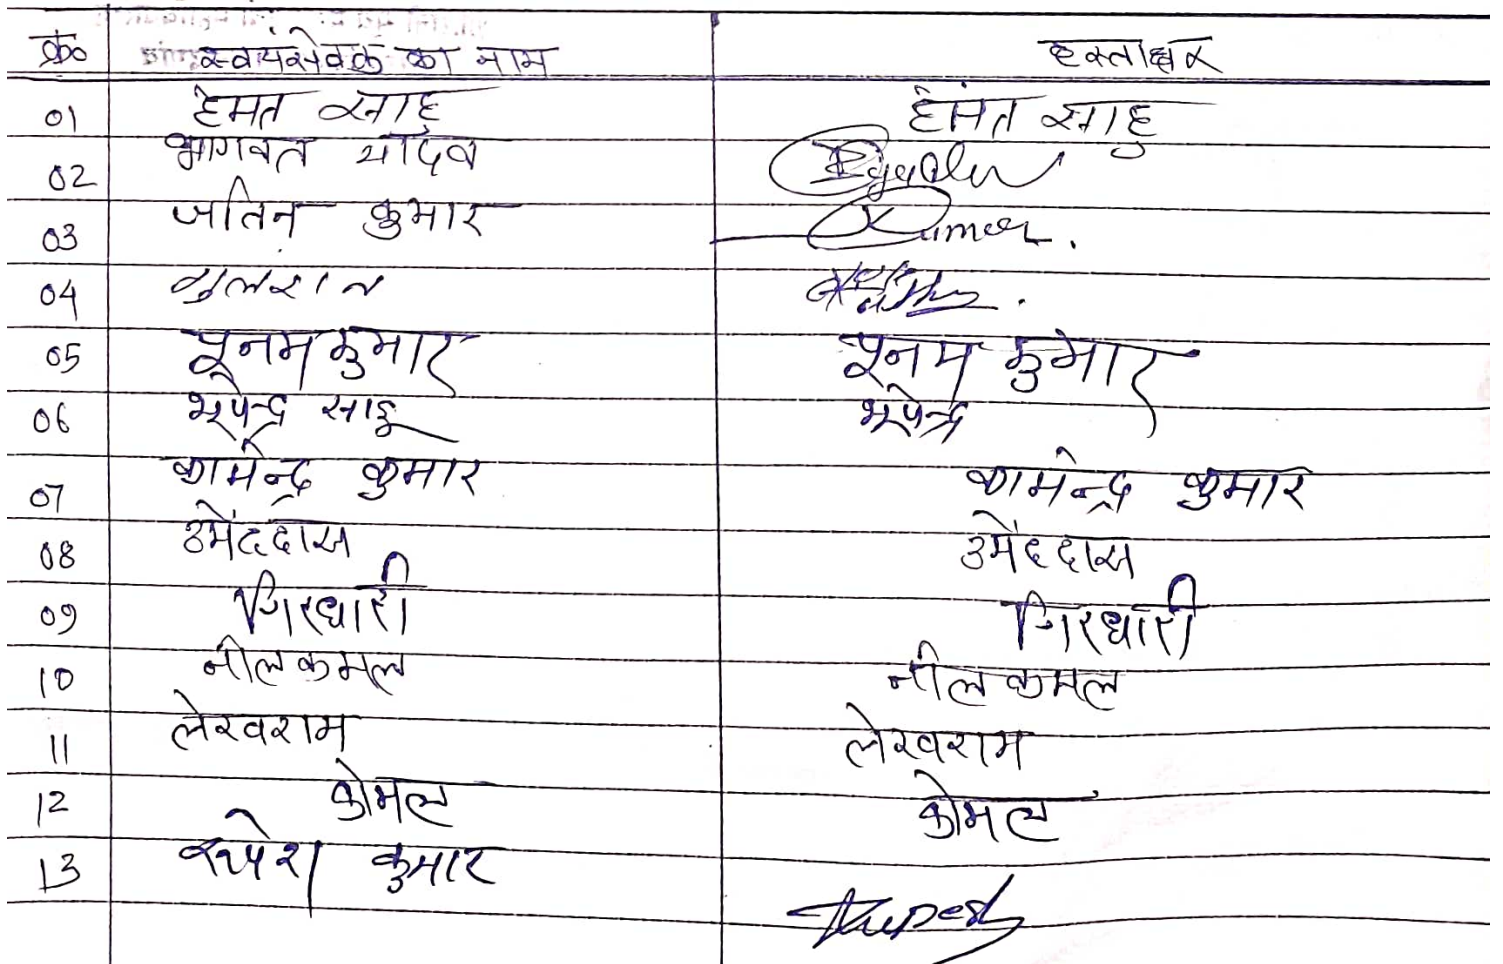 क्र० स्वयंसेवक का नाम हस्ताक्षर
01 हेमंत साहू हेमंत साहू
02 भागवत यादव
03 जतिन कुमार Kumar.
04 गुलशन
05 पूनम कुमार पूनम कुमार
06 भूपेन्द्र साहू भूपेन्द्र
07 कामेन्द्र कुमार कामेन्द्र कुमार
08 उमेंददास उमेंददास
09 गिरधारी गिरधारी
10 नीलकमल नीलकमल
11 लेखराम लेखराम
12 कोमल कोमल
13 रूपेश कुमार Rupesh